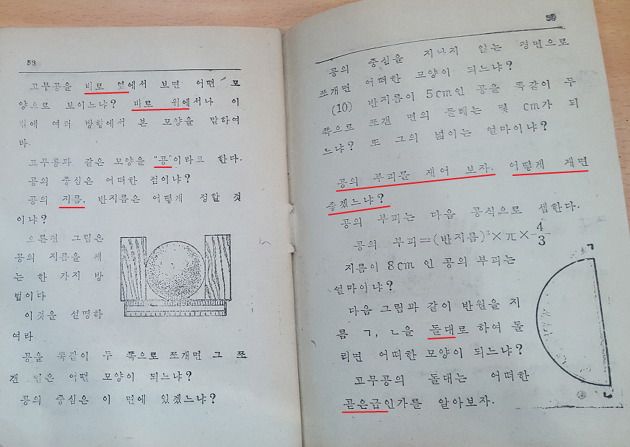 58
고무공을 바로 옆에서 보면 어떤 모
양으로 보이느냐? 바로 위에서나 이
밖에 여러 방향에서 본 모양을 말하여
라.
고무공과 같은 모양을 "공"이라고 한다.
공의 중심은 어떠한 점이냐?
공의 지름, 반지름은 어떻게 정할 것
이냐?
오른편 그림은
공의 지름을 재
는 한 가지 방
법이다
이것을 설명하
여라
공을 똑같이 두 쪽으로 쪼개면 그 쪼
갠 면은 어떤 모양이 되느냐?
공의 중심은 이 면에 있겠느냐?
공의 중심을 지나지 않는 평면으로
쪼개면 어떠한 모양이 되느냐?
(10) 반지름이 5cm인 공을 똑같이 두
쪽으로 쪼갠 면의 둘레는 몇 cm가 되
느냐? 또 그의 넓이는 얼마이냐?
공의 부피를 재어 보자. 어떻게 재면
좋겠느냐?
공의 부피는 다음 공식으로 셈한다.
공의 부피=(반지름)³×π×4/3
지름이 8cm 인 공의 부피는
얼마이냐?
다음 그림과 같이 반원을 지
름 ㄱ, ㄴ을 돌대로 하여 돌
리면 어떠한 모양이 되느냐?
고무공의 돌대는 어떠한
곧은금인가를 알아보자.
ㄱ